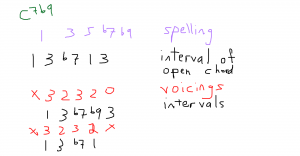 C7b9
1 3 5 b7 b9 spelling
1 3 b7 1 3 interval of open chord
x 3 2 3 2 0 voicings
1 3 b7 b9 3 intervals
x 3 2 3 2 x
1 3 b7 1